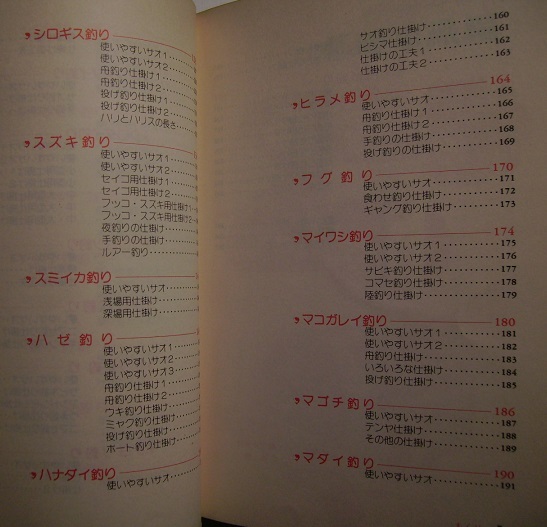 シロギス釣り
使いやすいサオ1
使いやすいサオ2
舟釣り仕掛け1
舟釣り仕掛け2
投げ釣り仕掛け1
投げ釣り仕掛け2
ハリとハリスの長さ
スズキ釣り
使いやすいサオ1
使いやすいサオ2
セイコ用仕掛け1
セイコ用仕掛け2
フッコ・スズキ用仕掛け1
フッコ・スズキ用仕掛け2
夜釣りの仕掛け
手釣りの仕掛け
ルアー釣り
スミイカ釣り
使いやすいサオ
浅場用仕掛け
深場用仕掛け
ハゼ釣り
使いやすいサオ1
使いやすいサオ2
使いやすいサオ3
舟釣り仕掛け1
舟釣り仕掛け2
ウキ釣り仕掛け
ミャク釣り仕掛け
投げ釣り仕掛け
ボート釣り仕掛け
ハナダイ釣り
使いやすいサオ
サオ釣り仕掛け 160
ビシマ仕掛け 161
仕掛けの工夫1 162
仕掛けの工夫2 163
ヒラメ釣り 164
使いやすいサオ 165
舟釣り仕掛け1 166
舟釣り仕掛け2 167
手釣りの仕掛け 168
投げ釣りの仕掛け 169
フグ釣り 170
使いやすいサオ 171
食わせ釣り仕掛け 172
ギャング釣り仕掛け 173
マイワシ釣り 174
使いやすいサオ1 175
使いやすいサオ2 176
サビキ釣り仕掛け 177
コマセ釣り仕掛け 178
陸釣り仕掛け 179
マコガレイ釣り 180
使いやすいサオ1 181
使いやすいサオ2 182
舟釣り仕掛け 183
いろいろな仕掛け 184
投げ釣り仕掛け 185
マゴチ釣り 186
使いやすいサオ 187
テンヤ仕掛け 188
その他の仕掛け 189
マダイ釣り 190
使いやすいサオ 191